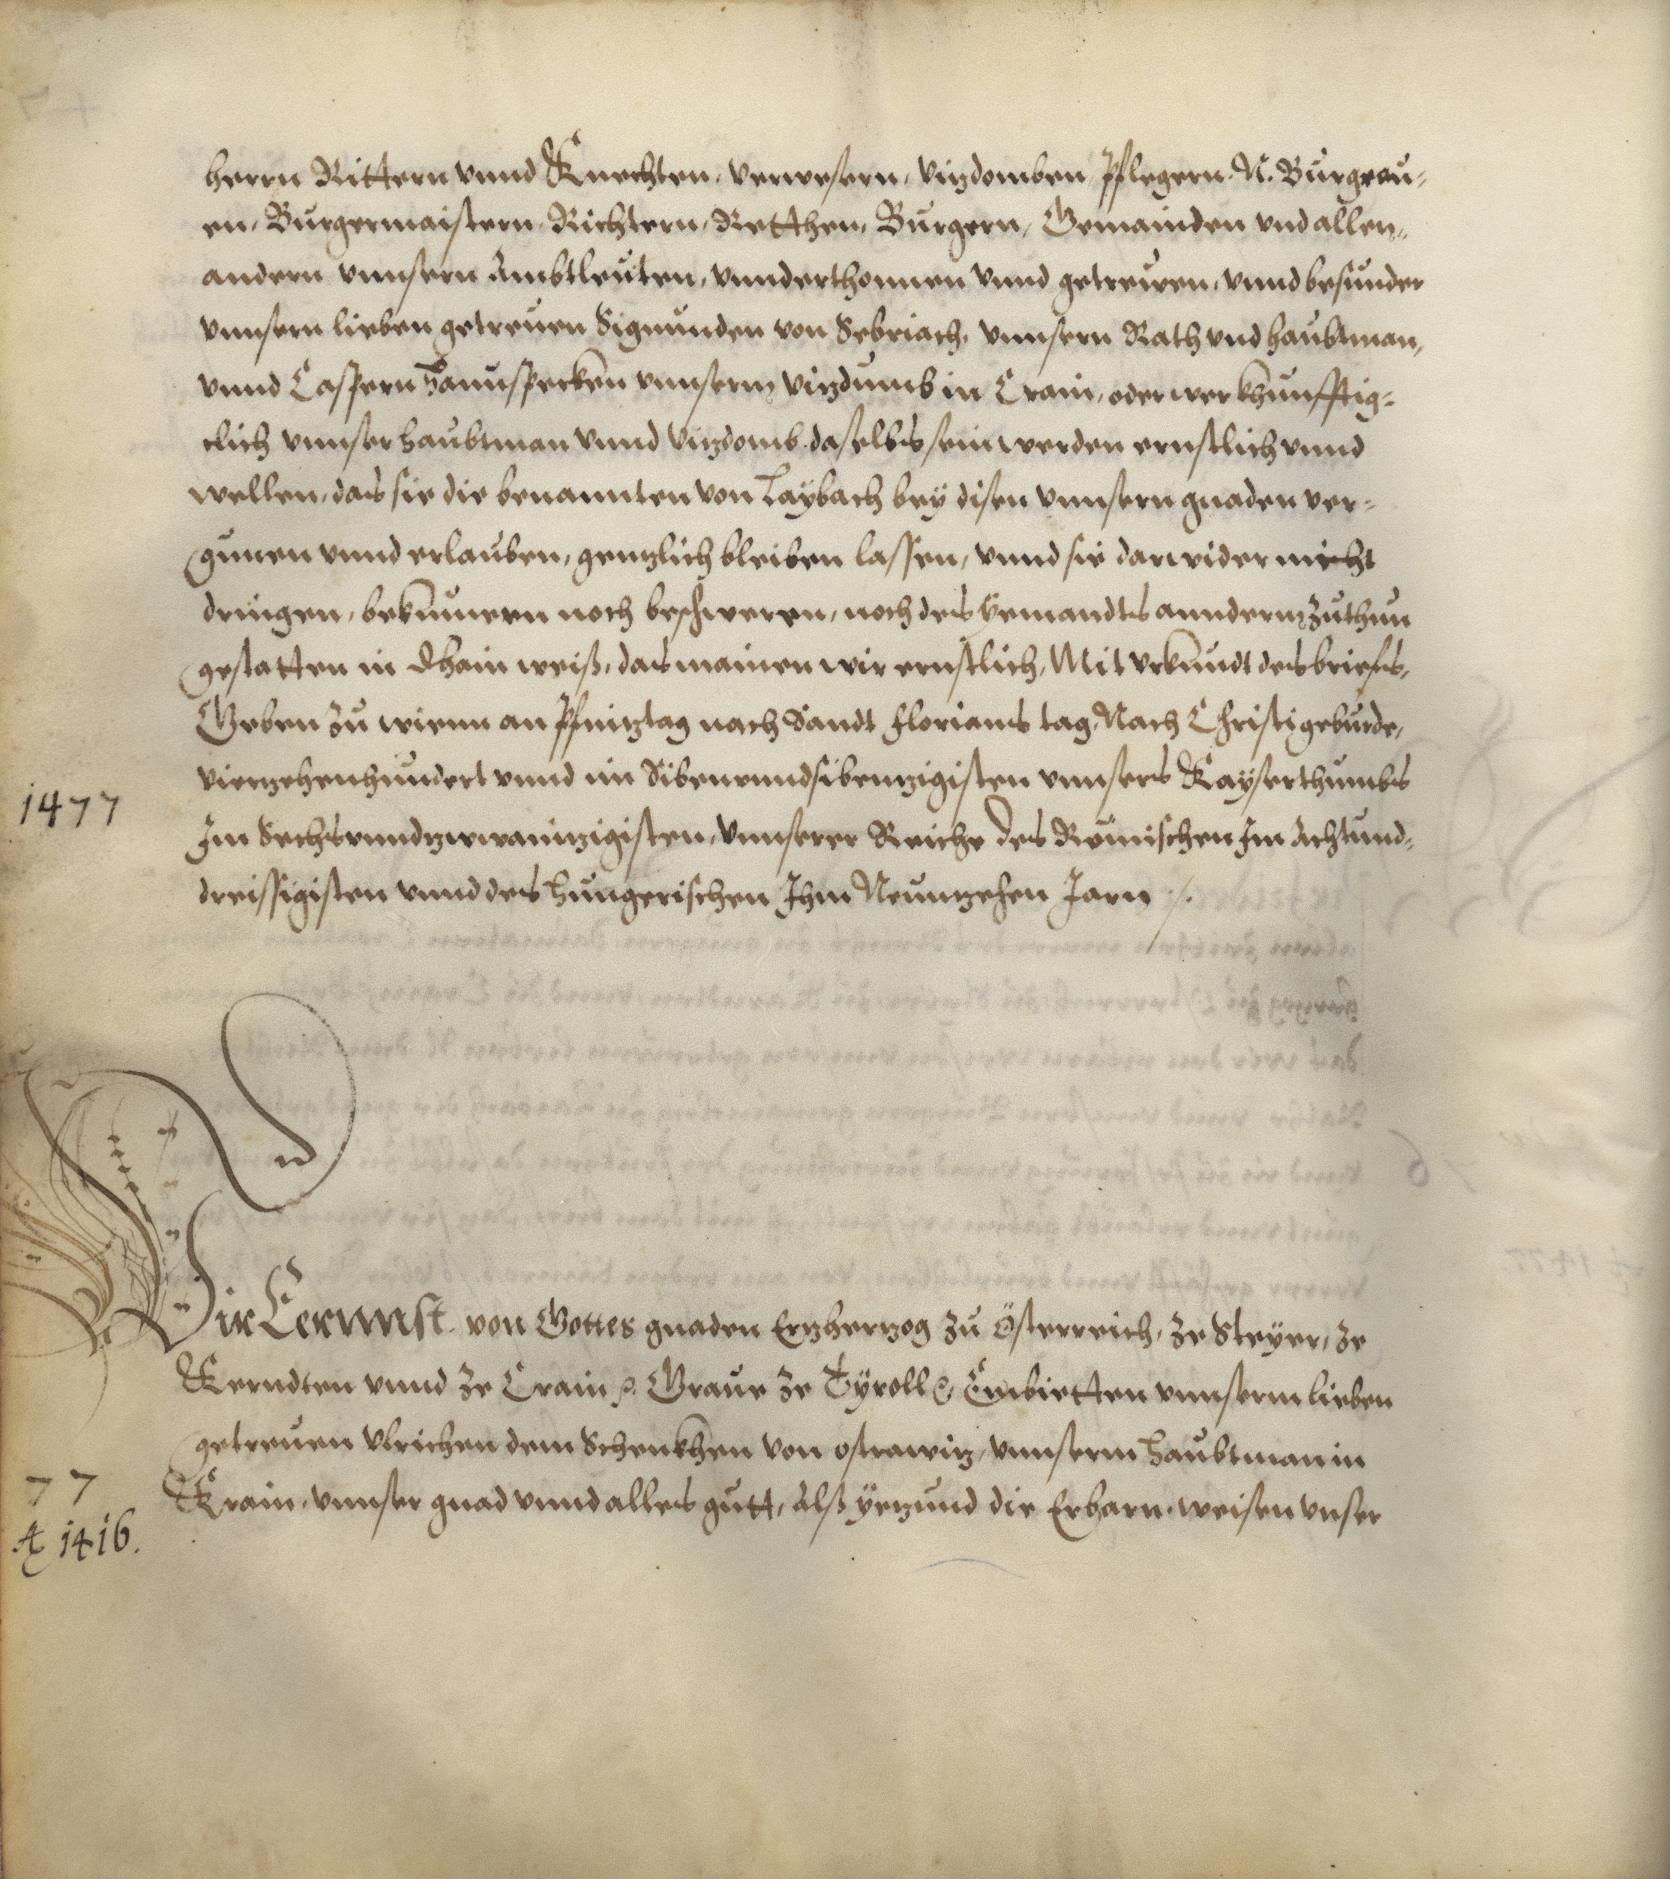 herrn Rittern vnnd Knechten, Verwesern, Vizdomben Pflegern. N. Burgrau-
en, Burgermaistern, Richtern, Retthen, Burgern, Gemainden vnd allen
andern vnnsern Ambtleüten, vnnderthonnen vnnd getrewen, vnnd besunder
vnnsern lieben getreuen Sigmunden von Sebriach, vnnsern Rath vnd haubtman,
vnnd Caspern Tannsperkhen vnnserm Vizdumb in Crain, oder wer khunfftig-
clich vnnser haubtman vnnd Vizdomb daselbs sein werden ernstlich vnnd
wellen, das sie die benannten von Laybach bey disen vnnsern gnaden ver-
gunnen vnnd erlauben, genzlich bleiben lassen, vnnd sie darwider nicht
dringen, bekhumern noch beschweren, noch des yemandts anndern zuthun
gestatten in khain weiß, das mainen wir ernstlich, Mit vrkhundt des briefs,
Geben zu wienn an Pfinztag nach Sandt Florians tag, Nach Christi geburde,
vierzehenhundert vnnd im Sibenvnndsibenzigisten vnnsers Kayserthumbs
1477
Im Sechsvnndzwainzigisten, Vnnserer Reiche des Römischen Im Achtund-
dreissigisten vnnd des hungerischen Ihm Neunzehen Jarn
Wir Eernnst von Gottes gnaden Erzherzog zu Österreich, ze Steyer, ze
Kerndten vnnd ze Crain, Graue ze Tyroll, Embietten vnnserm lieben
getreuen Vlrichen dem Schenkhen von ostrawiz, vnnserm haubtman in
Krain, vnnser gnad vnnd alles gutt, Alß yezund die Erbarn, weisen vnser
77
A 1416.